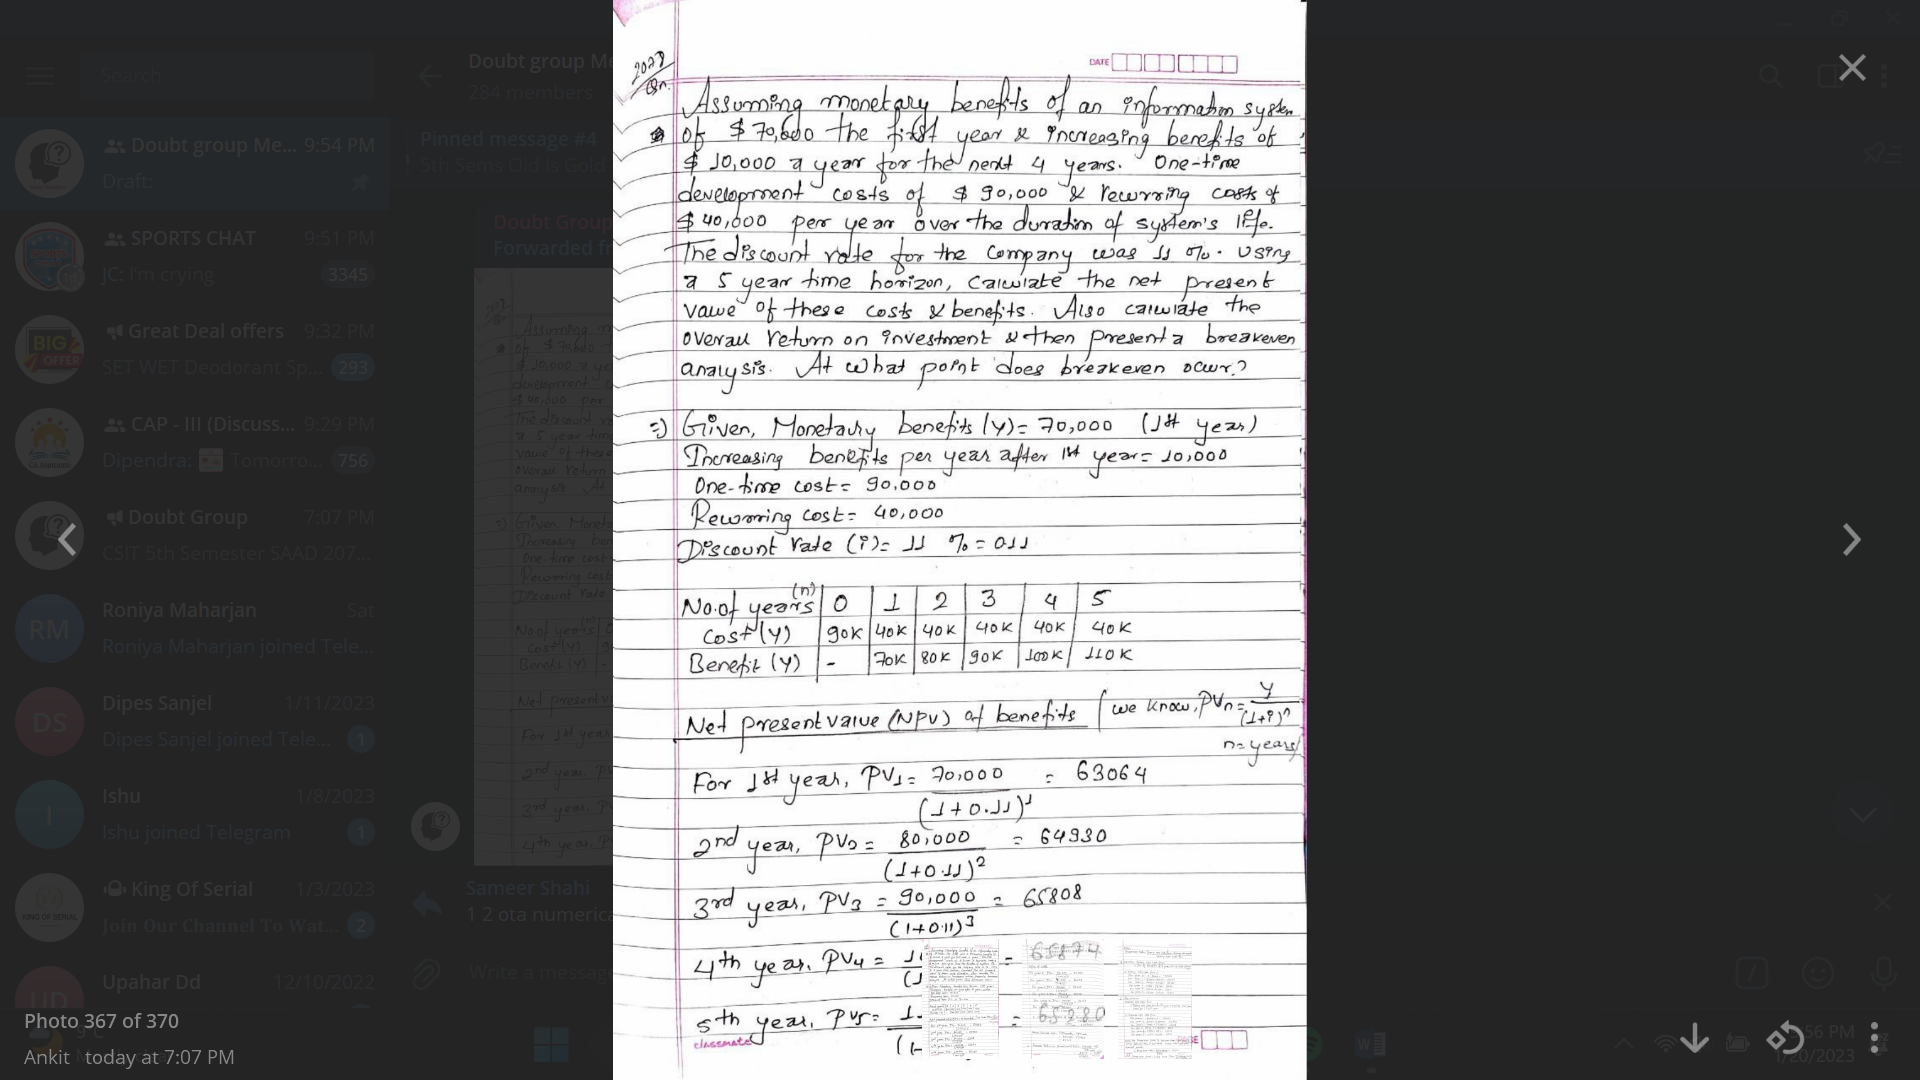 Search
Doubt group Me
284 members
Pinned message #4
5th Sems Old Is Gold
Doubt group Me... 9:54 PM
Draft:
SPORTS CHAT 9:51 PM
JC: I'm crying 3345
Great Deal offers 9:32 PM
SET WET Deodorant Sp... 293
CAP - III (Discuss... 9:29 PM
Dipendra: Tomorro... 756
Doubt Group 7:07 PM
CSIT 5th Semester SAAD 207...
Roniya Maharjan Sat
Roniya Maharjan joined Tele...
Dipes Sanjel 1/11/2023
Dipes Sanjel joined Tele... 1
Ishu 1/8/2023
Ishu joined Telegram 1
King Of Serial 1/3/2022
Join Our Channel To Wat... 2
Upahar Dd 12/10/2022
Photo 367 of 370
Ankit today at 7:07 PM
Doubt Group
Forwarded fr
Sameer Shahi
1 2 ota numerica
Write a messag
DATE
Qn.
Assuming monetary benefits of an information system
of $ 70,000 the first year & increasing benefits of
$ 10,000 a year for the next 4 years. One-time
development costs of $ 90,000 & recurring costs of
$ 40,000 per year over the duration of system's life.
The discount rate for the company was 11 %. Using
a 5 year time horizon, calculate the net present
value of these costs & benefits. Also calculate the
overall return on investment & then present a breakeven
analysis. At what point does breakeven occur?
=) Given, Monetary benefits (y) = 70,000 (1st year)
Increasing benefits per year after 1st year = 10,000
One-time cost = 90,000
Recurring cost = 40,000
Discount rate (i) = 11 % = 0.11
No. of years (n) 0 1 2 3 4 5
Cost (y) 90K 40K 40K 40K 40K 40K
Benefit (y) - 70K 80K 90K 100K 110K
Net present value (NPV) of benefits (we know, PVn = y/(1+i)^n
n = years)
For 1st year, PV1 = 70,000/(1+0.11)^1 = 63064
2nd year, PV2 = 80,000/(1+0.11)^2 = 64930
3rd year, PV3 = 90,000/(1+0.11)^3 = 65808
4th year, PV4 = = 65874
5th year, PV5 = = 65280
classmate